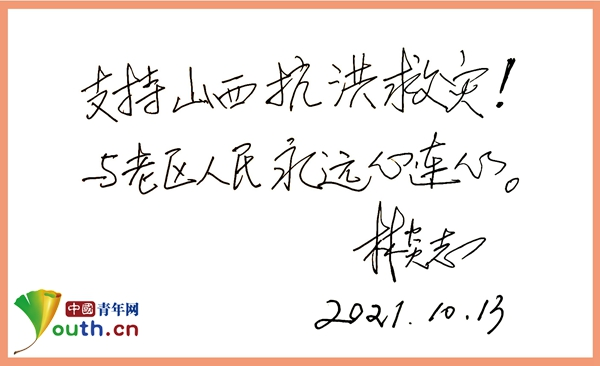 支持山西抗洪救灾！
与老区人民永远心连心。
林炎志
2021.10.13
中國青年网
Youth.cn